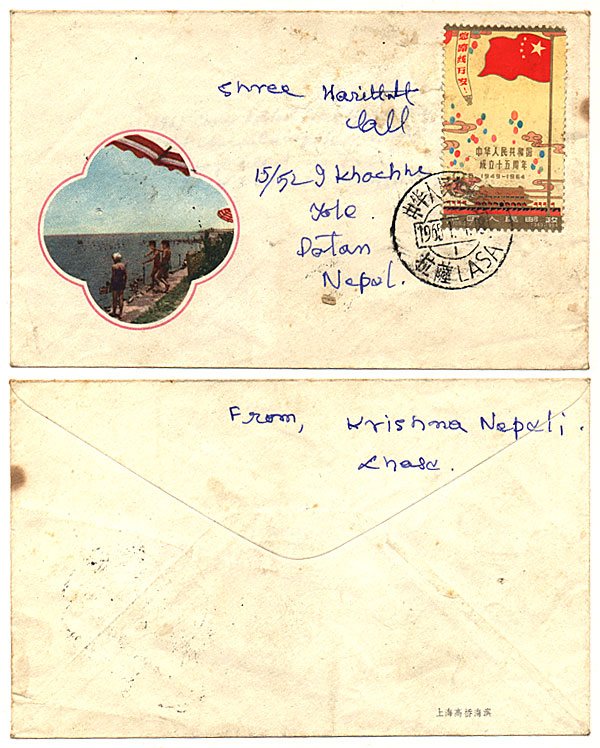 Shree
Lall
15/52 I Khachhe
Tole.
Patan
Nepal.
中华人民共和国
成立十五周年
1949-1964
中国人民邮政
中华人民
196
拉薩 LASA
From, Krishna Nepali.
Lhasa.
上海高桥海滨